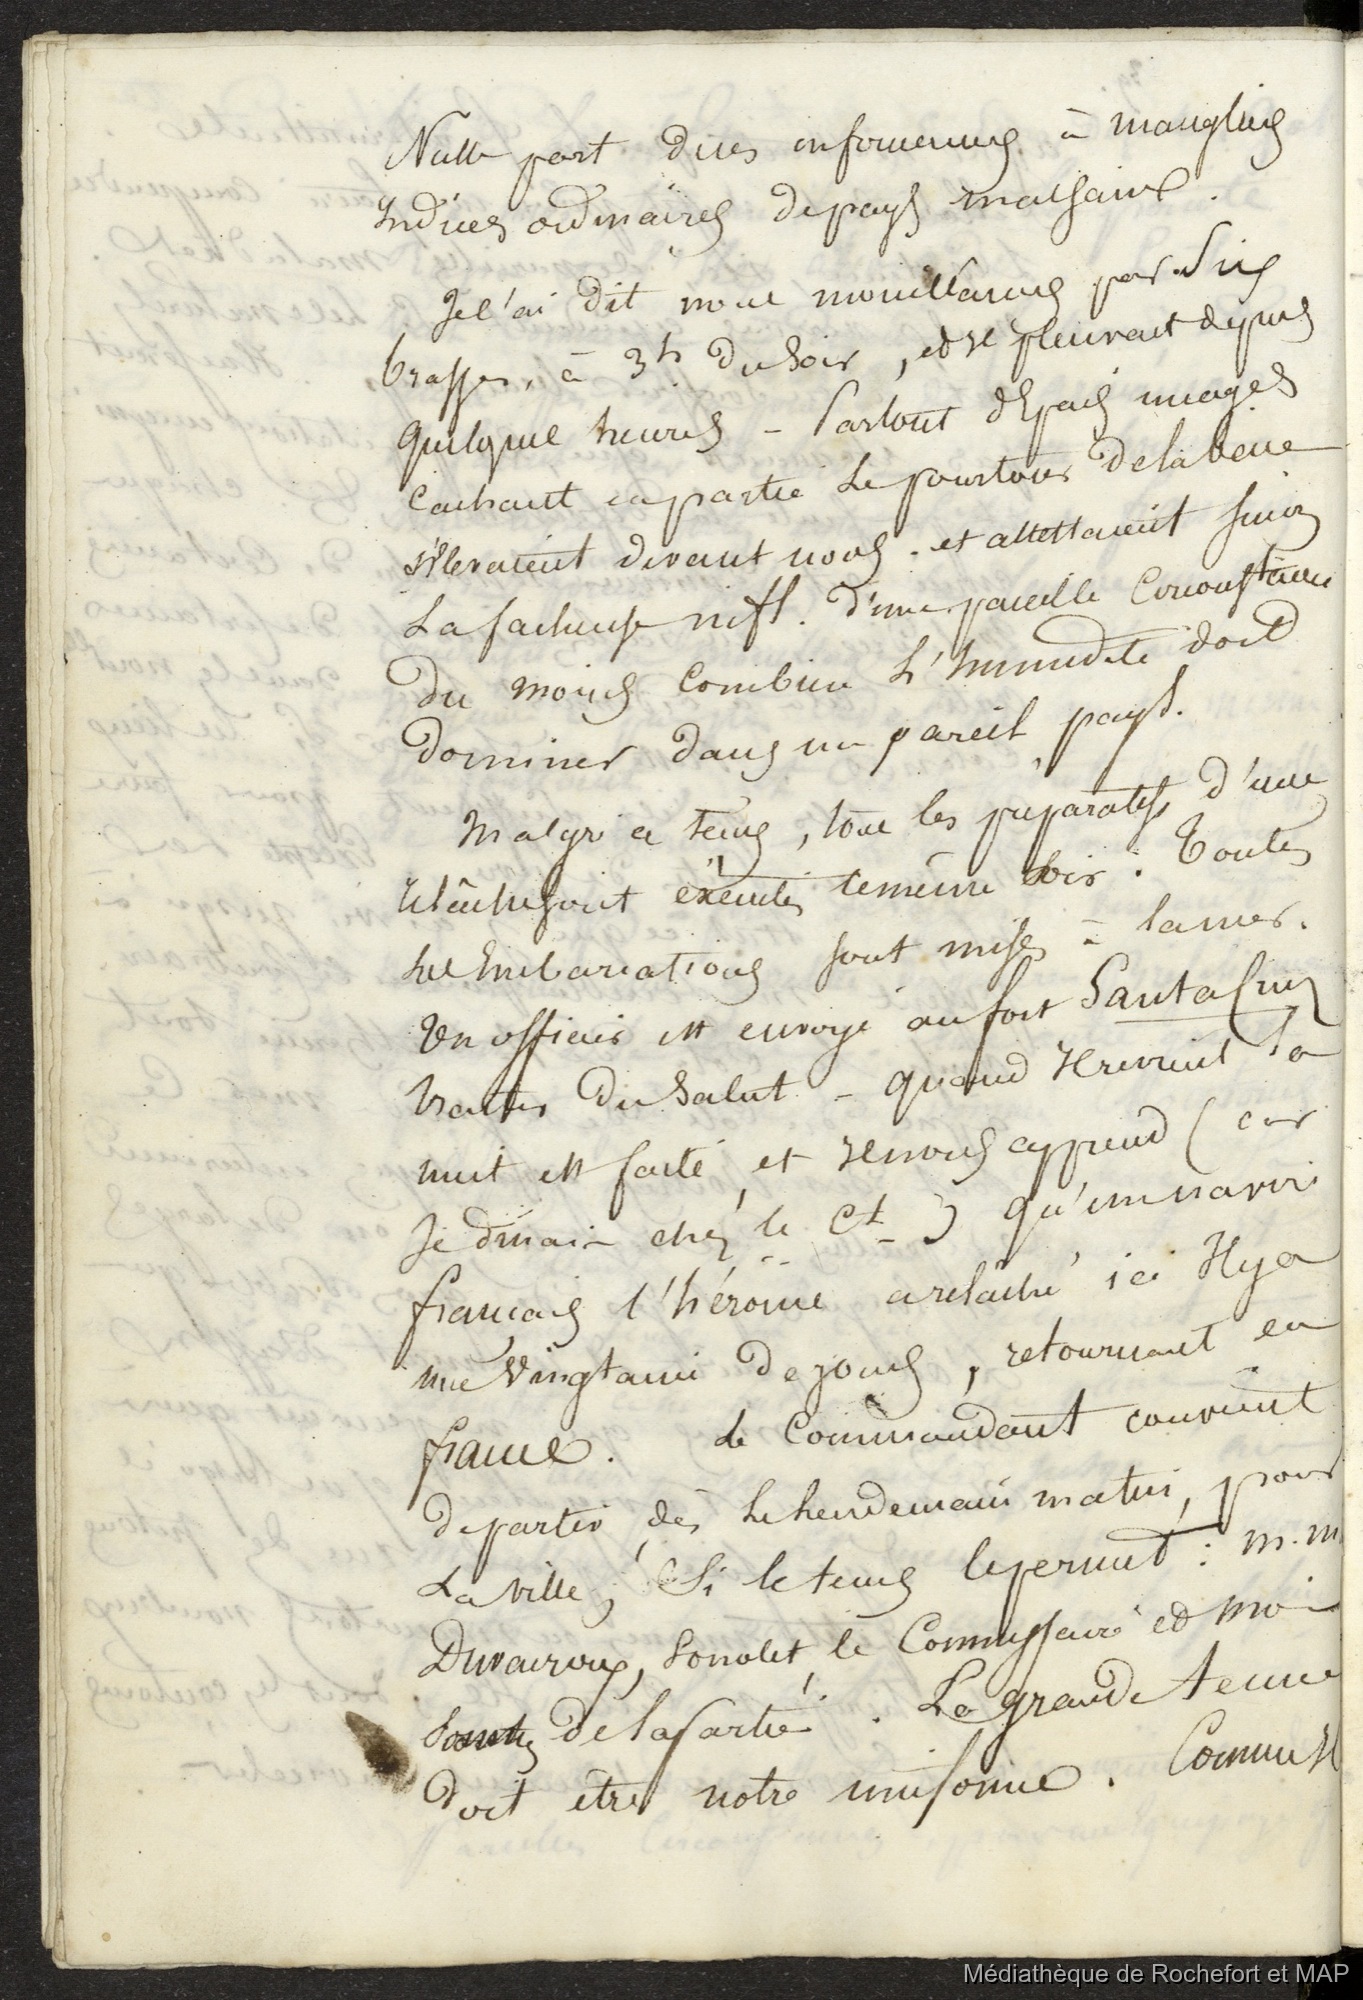 Nulle part d'enfoncemens à mangliers
Indices ordinaires de pays malsains.
Je l'ai dit nous mouillames par six
brasses, à 3h du soir, et il pleuvait depuis
quelques heures – Partout d'épais nuages
cachant en partie le pourtour de la baie
s'élevaient devant nous. et attestaient sinon
La facheuse infl. d'une pareille circonstance
du moins combien l'humidité doit
dominer dans un pareil pays.
Malgré ce tems, tous les préparatifs d'une
relâche sont éxécutés le même soir. Toutes
les Embarcations sont mises à la mer.
Un officier est envoyé au fort Santa Cruz
traiter du salut – quand Il revint la
nuit est faite, et Il nous apprend (car
Je dinais chez le Ct) qu'un navire
français l'héroine a relâché ici Il y a
une Vingtaine de jours, retournant en
france. Le Commandant convient
de partir, dès le lendemain matin, pour
La ville, Si le tems le permet : m.m
Duvauroux, Sonolet, le Commissaire et moi
sommes de la partie. La grande tenue
doit être notre uniforme. Comme Il
Médiathèque de Rochefort et MAP